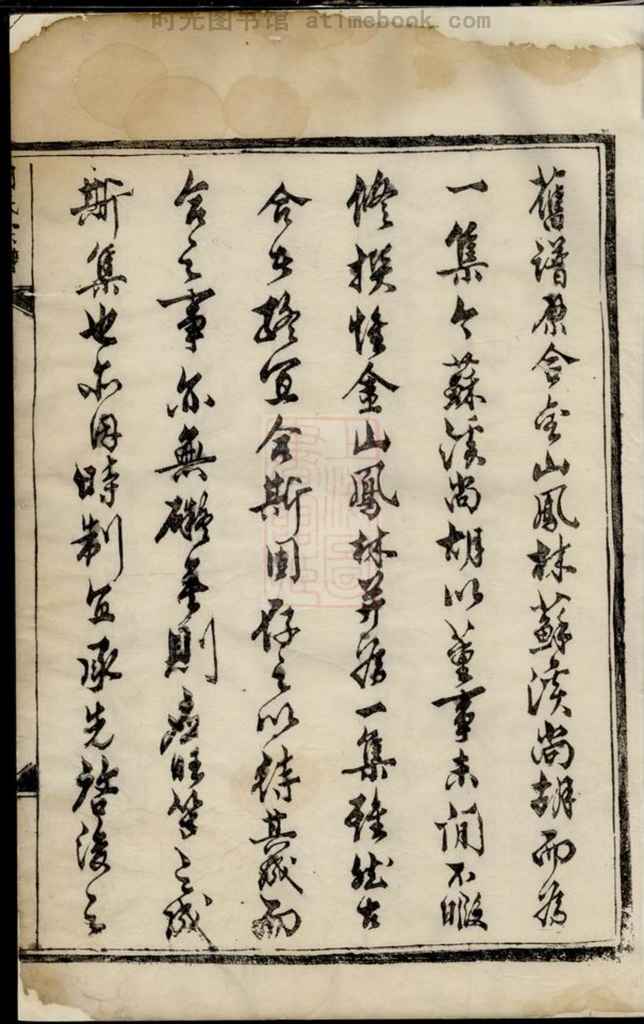 时光图书馆 atimebook.com
舊譜原合金山鳳林蘇溪尚胡而為
一集今蘇溪尚胡以董事未閒不暇
修撰惟金山鳳林并為一集雖然古
合古 宜合斯固存之以待其成而
合之事亦無礙 則 之成
斯集也亦因時制宜承先啓後之